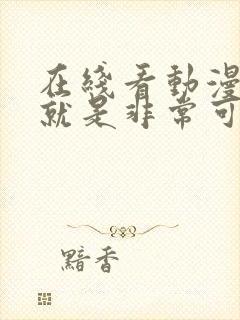 在綫看動漫
就是非常可
黯香